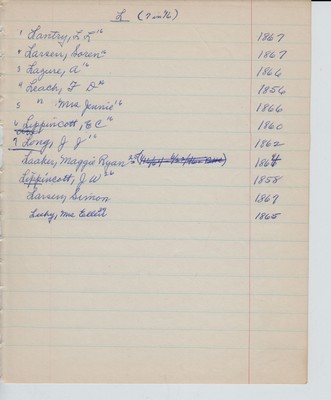 L (7 in 16)
1 Lantry, L L 16 1867
2 Larsen, Soren 16 1867
3 Lazure, A 16 1864
4 Leach, F D 16 1856
5 " Mrs Jennie 16 1866
6 Lippincott, E C 16 1860
7 Long, J J 16 1862
Luaker, Maggie Ryan 1864
Lippincott, J W 26 1858
Larsen, Simon 1867
Leeby, Mrs 1865